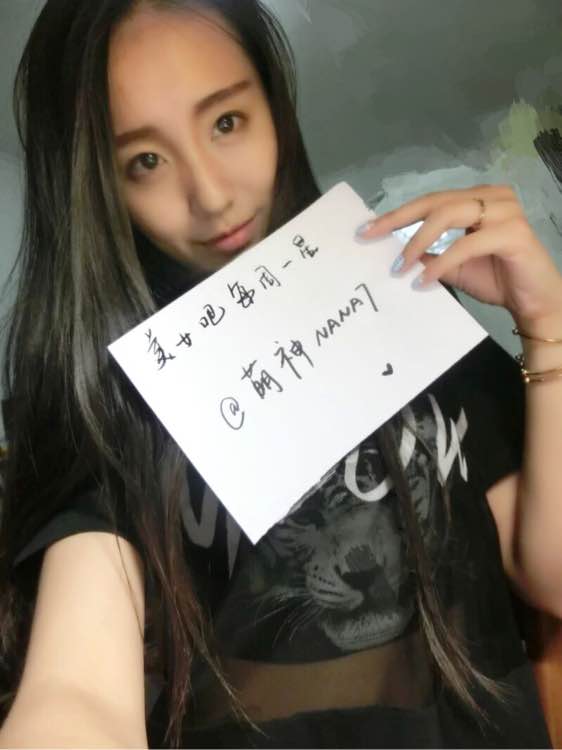 美女吧每周一星
@萌神NANA7